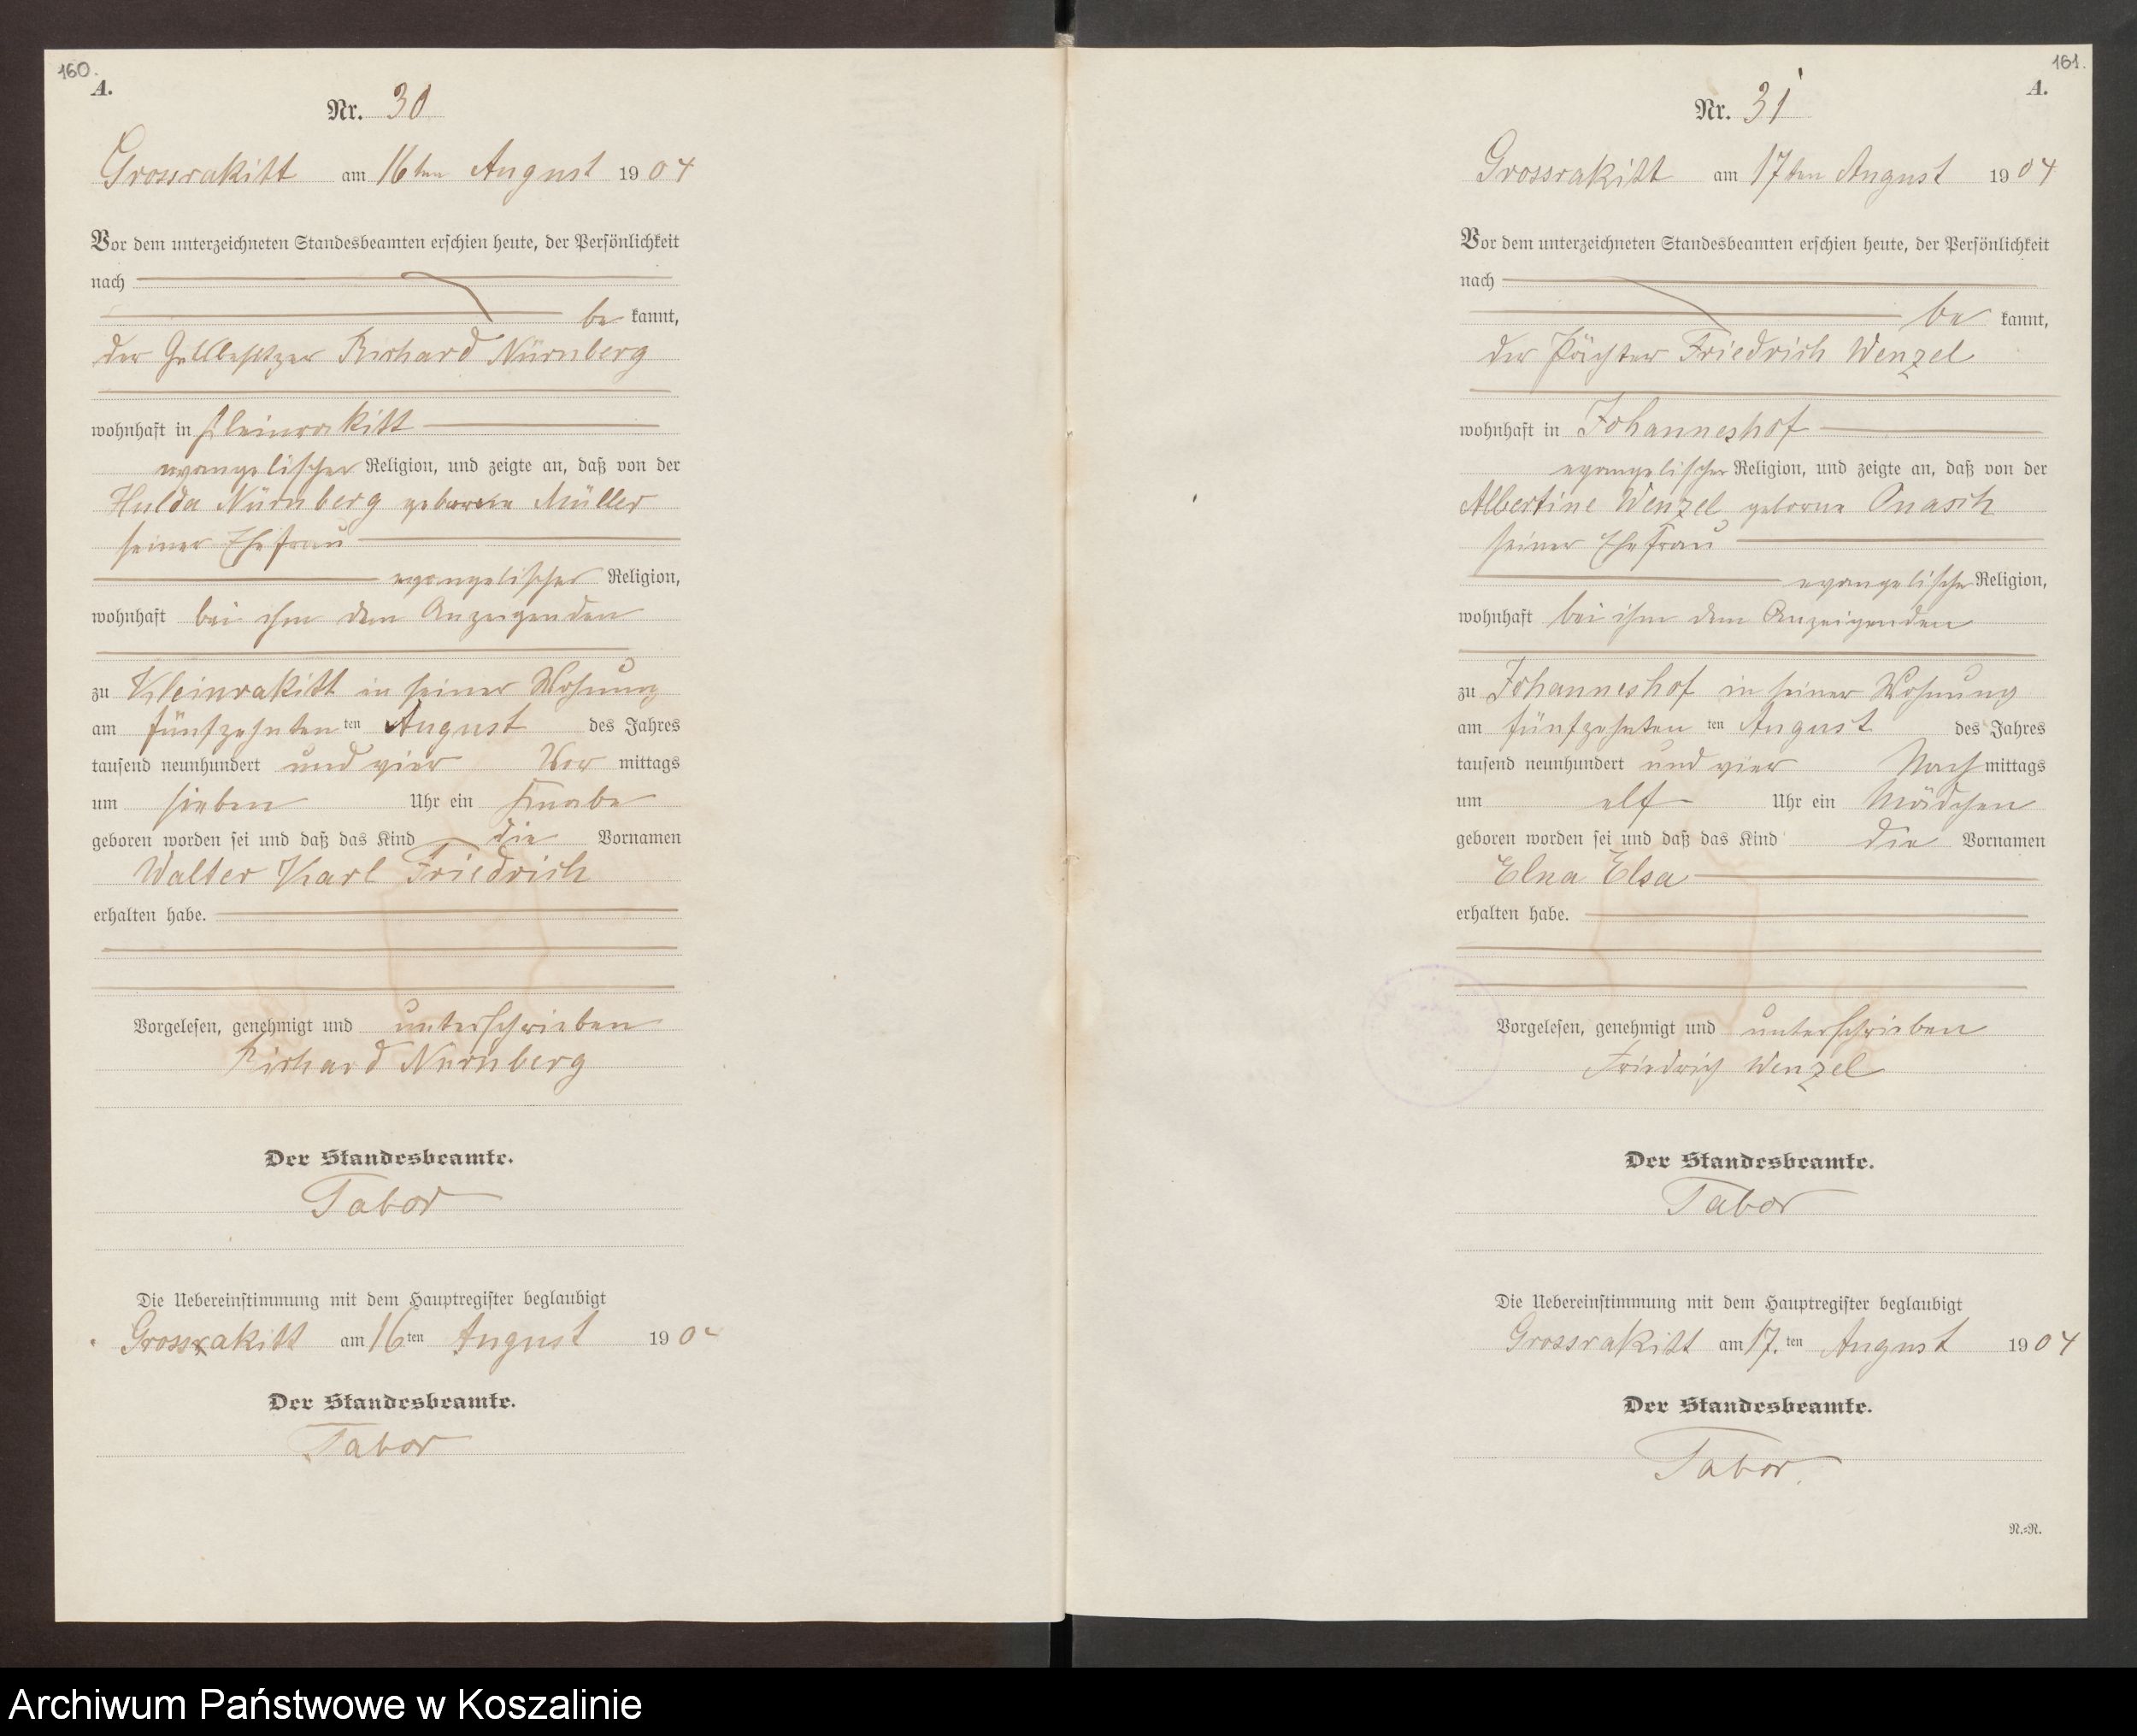 160.
A.
Nr. 30
Grossrakitt am 16ten August 1904
Vor dem unterzeichneten Standesbeamten erschien heute, der Persönlichkeit
nach
be kannt,
der Richard Nürnberg
wohnhaft in Kleinrakitt
evangelischer Religion, und zeigte an, daß von der
Hulda Nürnberg geborene Müller
seiner Ehefrau
evangelischer Religion,
wohnhaft bei ihm dem Anzeigenden
zu Kleinrakitt in seiner Wohnung
am fünfzehnten ten August des Jahres
tausend neunhundert und vier Vor mittags
um sieben Uhr ein Knabe
geboren worden sei und daß das Kind die Vornamen
Walter Karl Friedrich
erhalten habe.
Vorgelesen, genehmigt und unterschrieben
Richard Nürnberg
Der Standesbeamte.
Tabor
Die Uebereinstimmung mit dem Hauptregister beglaubigt
Grossrakitt am 16ten August 190
Der Standesbeamte.
Tabor
161.
A.
Nr. 31
Grossrakitt am 17ten August 1904
Vor dem unterzeichneten Standesbeamten erschien heute, der Persönlichkeit
nach
be kannt,
der Pächter Friedrich Wenzel
wohnhaft in Johanneshof
evangelischer Religion, und zeigte an, daß von der
Albertine Wenzel geborne Onasch
seiner Ehefrau
evangelischer Religion,
wohnhaft bei ihm dem Anzeigenden
zu Johanneshof in seiner Wohnung
am fünfzehnten ten August des Jahres
tausend neunhundert und vier Nach mittags
um elf Uhr ein Mädchen
geboren worden sei und daß das Kind die Vornamen
Elna Elsa
erhalten habe.
Vorgelesen, genehmigt und unterschrieben
Friedrich Wenzel
Der Standesbeamte.
Tabor
Die Uebereinstimmung mit dem Hauptregister beglaubigt
Grossrakitt am 17.ten August 1904
Der Standesbeamte.
Tabor.
N.=N.
Archiwum Państwowe w Koszalinie